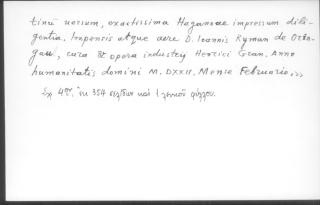 tinũ versum, exactissima Hagānoae impressum dili-
gentia. Impensis atque aere D. Ioannis Ryman de Orin-
gaw, cura & opera industrij Henrici Gran. Anno
humanitatis domini M.DXXII. Mense Februario.
Σχ 4º, ἐν 354 σελίδων καὶ 1 λευκοῦ φύλλου.